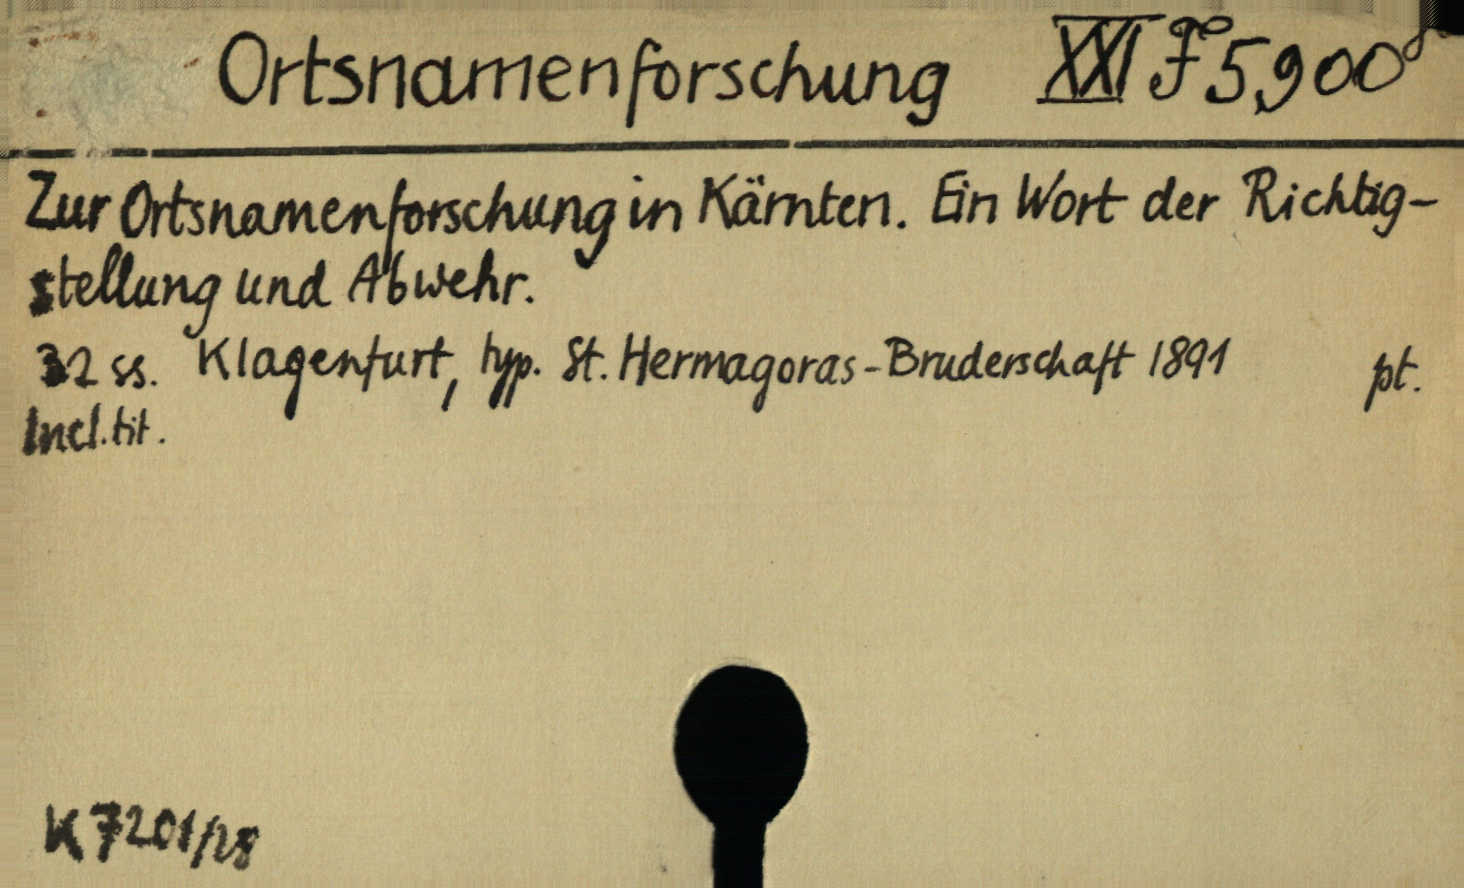 Ortsnamenforschung XXI F 5,900
Zur Ortsnamenforschung in Kärnten. Ein Wort der Richtig-
stellung und Abwehr.
32 ss. Klagenfurt, typ. St. Hermagoras-Bruderschaft 1891 pt.
Incl. tit.
K 7201/28